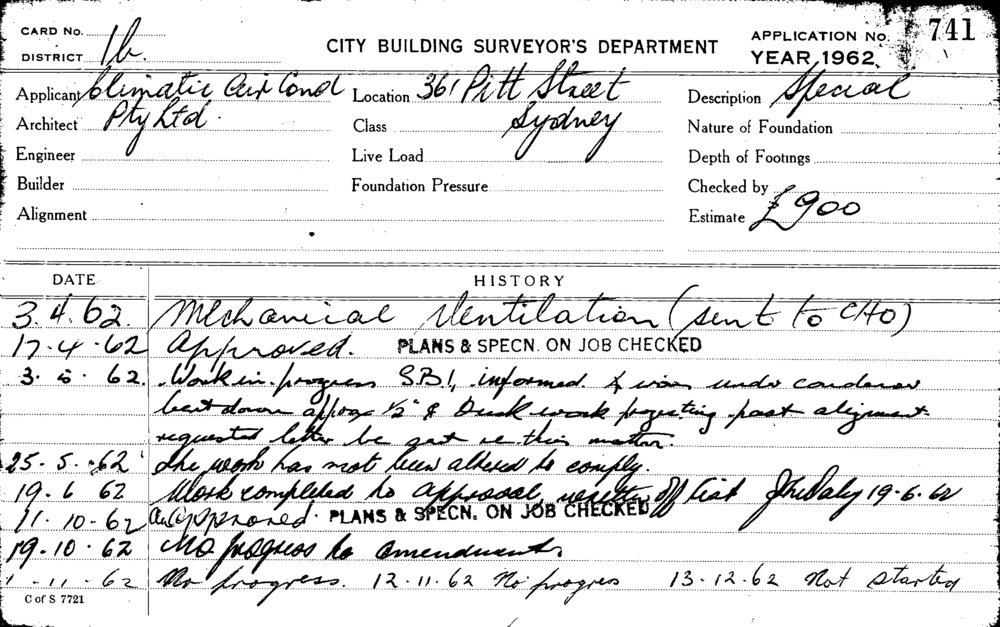 CARD No.
DISTRICT 1b.
CITY BUILDING SURVEYOR'S DEPARTMENT
APPLICATION No. 741
YEAR 1962
Applicant Climatic Air Cond Location 361 Pitt Street Description Special
Architect Pty Ltd. Class Sydney Nature of Foundation
Engineer Live Load Depth of Footings
Builder Foundation Pressure Checked by
Alignment Estimate £900
DATE HISTORY
3.4.62. Mechanical Ventilation (sent to CHO)
17.4.62 Approved. PLANS & SPECN. ON JOB CHECKED
3.5.62. Work in progress SBI, informed under condenser
bent down approx 1/2" & Duck work projecting past alignment.
requested letter be sent re this matter.
25.5.62 The work has not been altered to comply.
19.6 62 Work completed to approval, off list J Daly 19.6.62
11.10.62 approved. PLANS & SPECN. ON JOB CHECKED
19.10.62 No progress to amendments
1.11.62 No progress. 12.11.62 No progress 13.12.62 Not started
C of S 7721